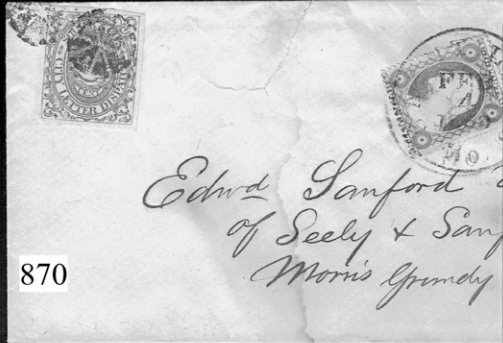 CITY LETTER DISPATCH
CENTS
FE
4
MO
Edwd Sanford
of Seely & Sanf
Morris Grundy
870